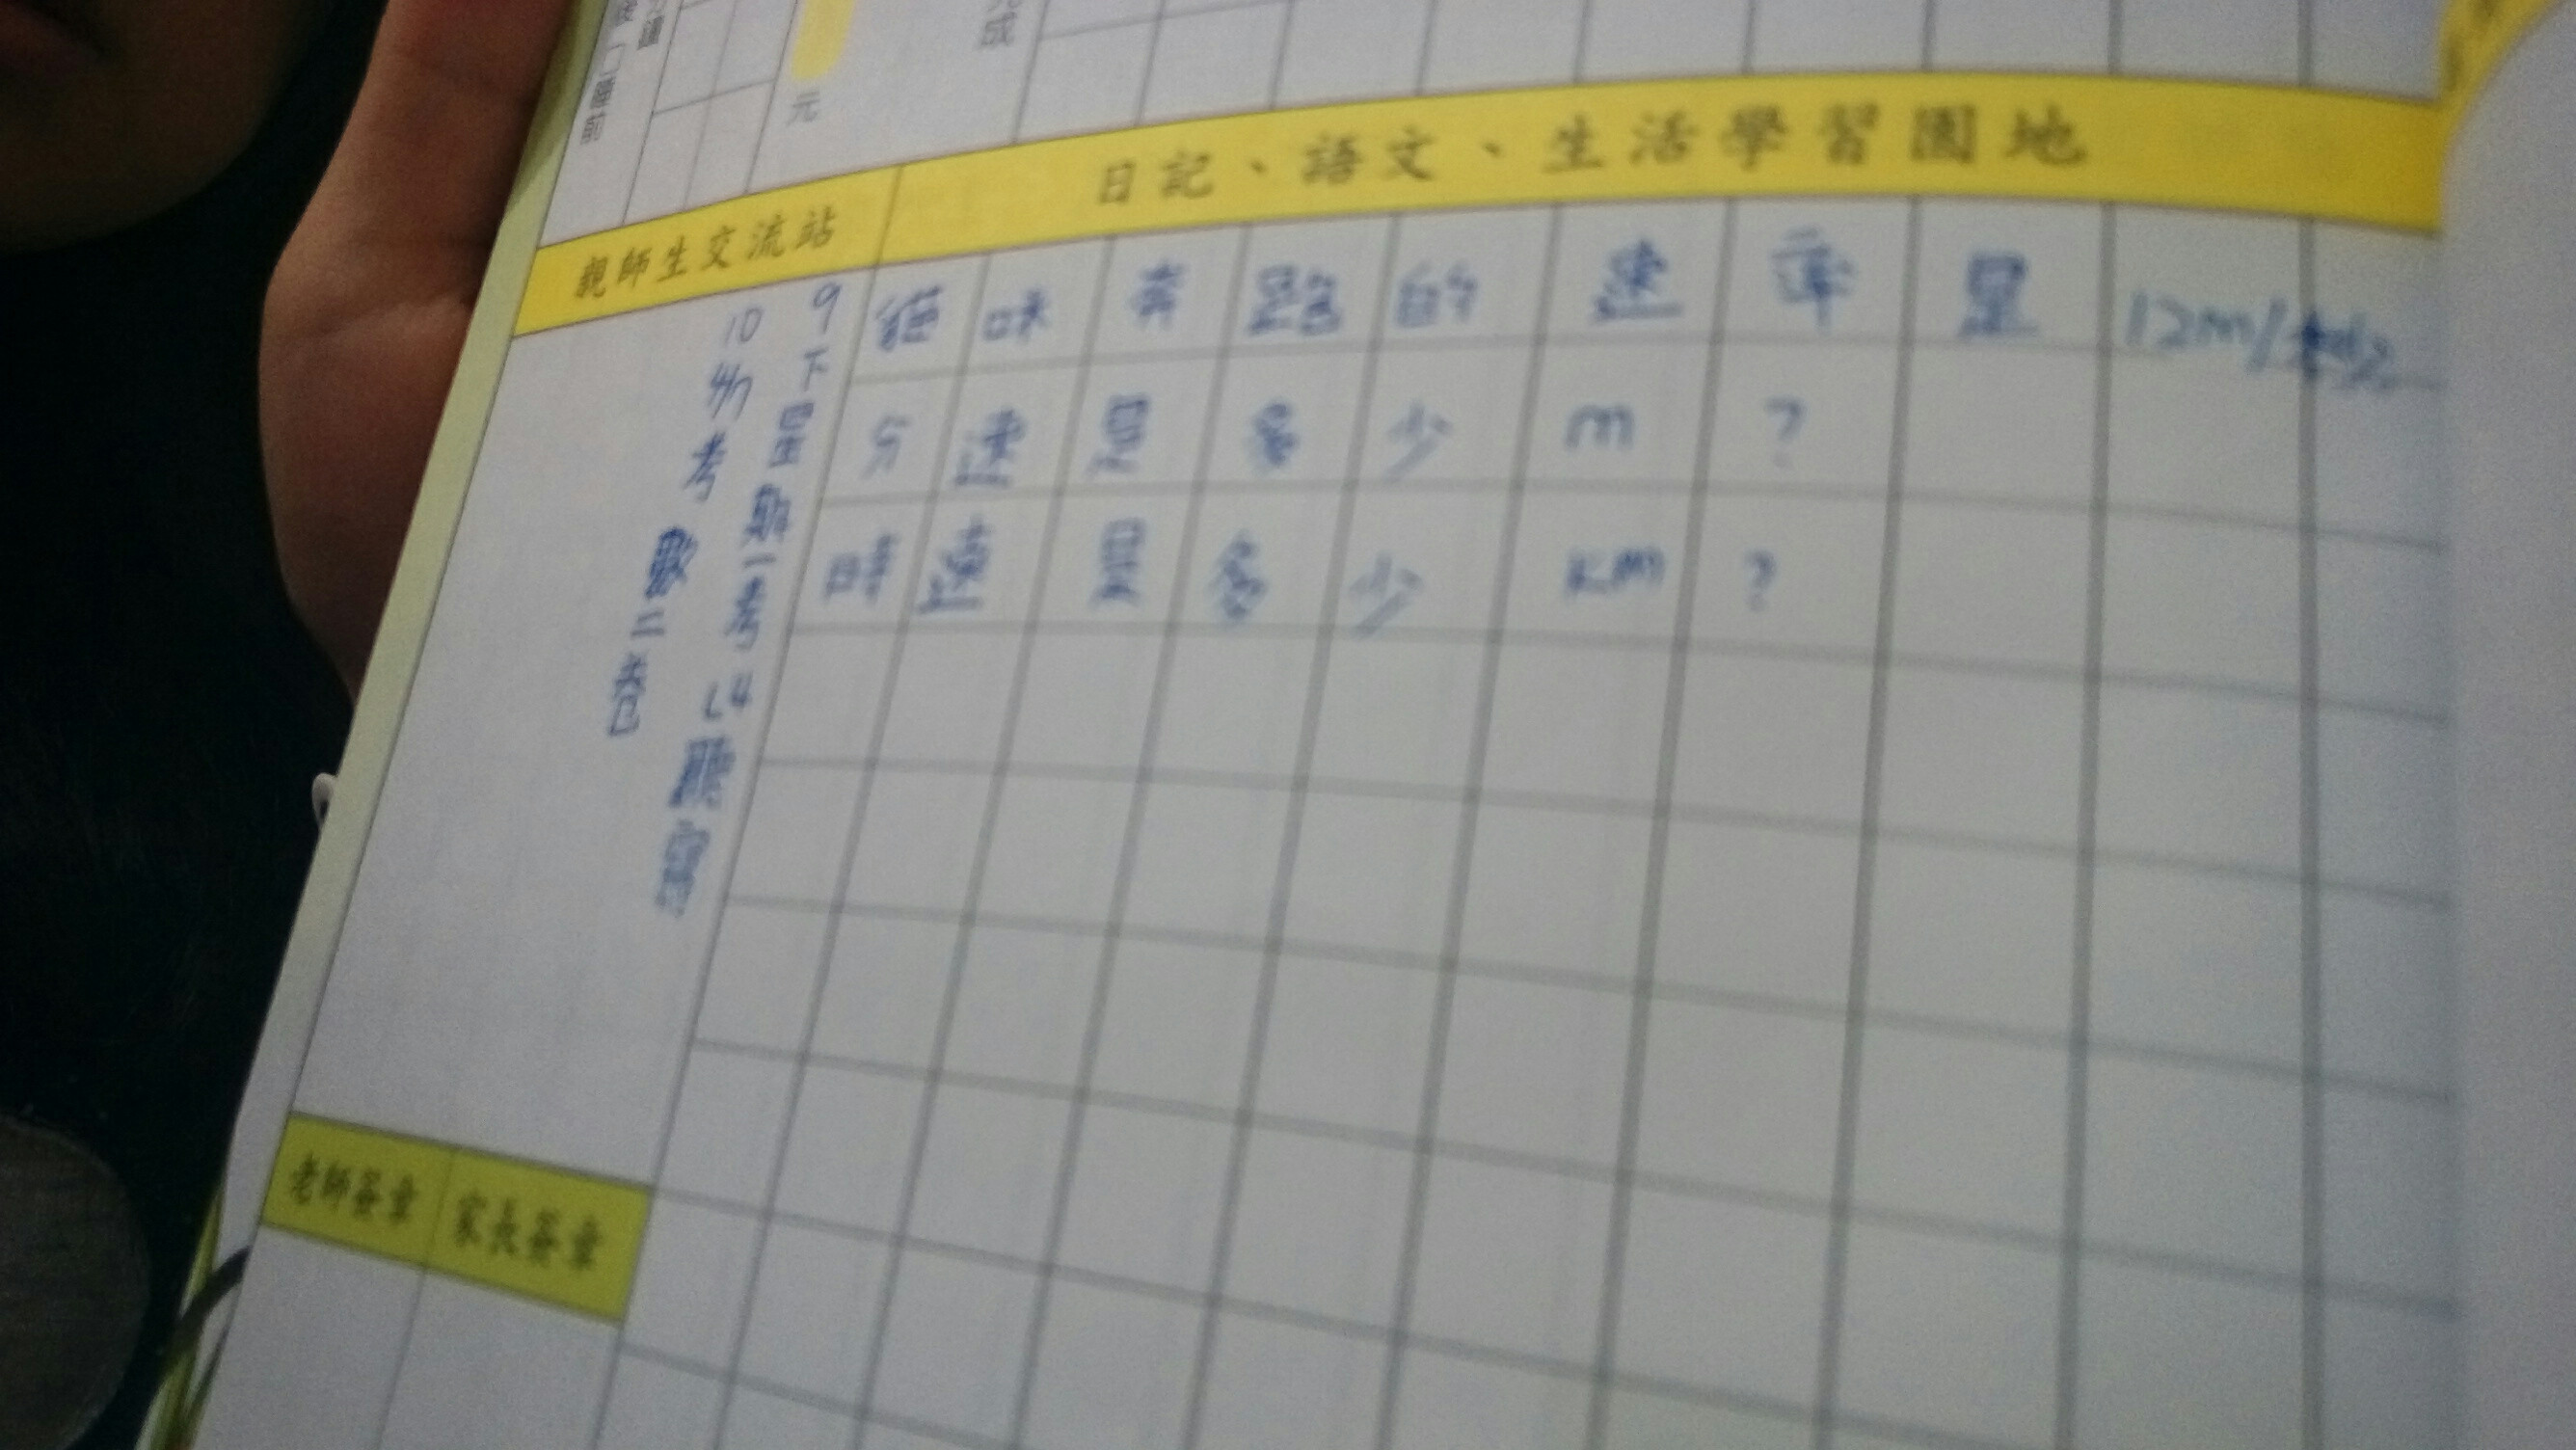 元
成
日記、語文、生活學習園地
親師生交流站
貓咪奔跑的速率是12m/秒
分速是多少m?
時速是多少km?
9下星期一考L4聽寫
10 考數二卷
老師簽章
家長簽章